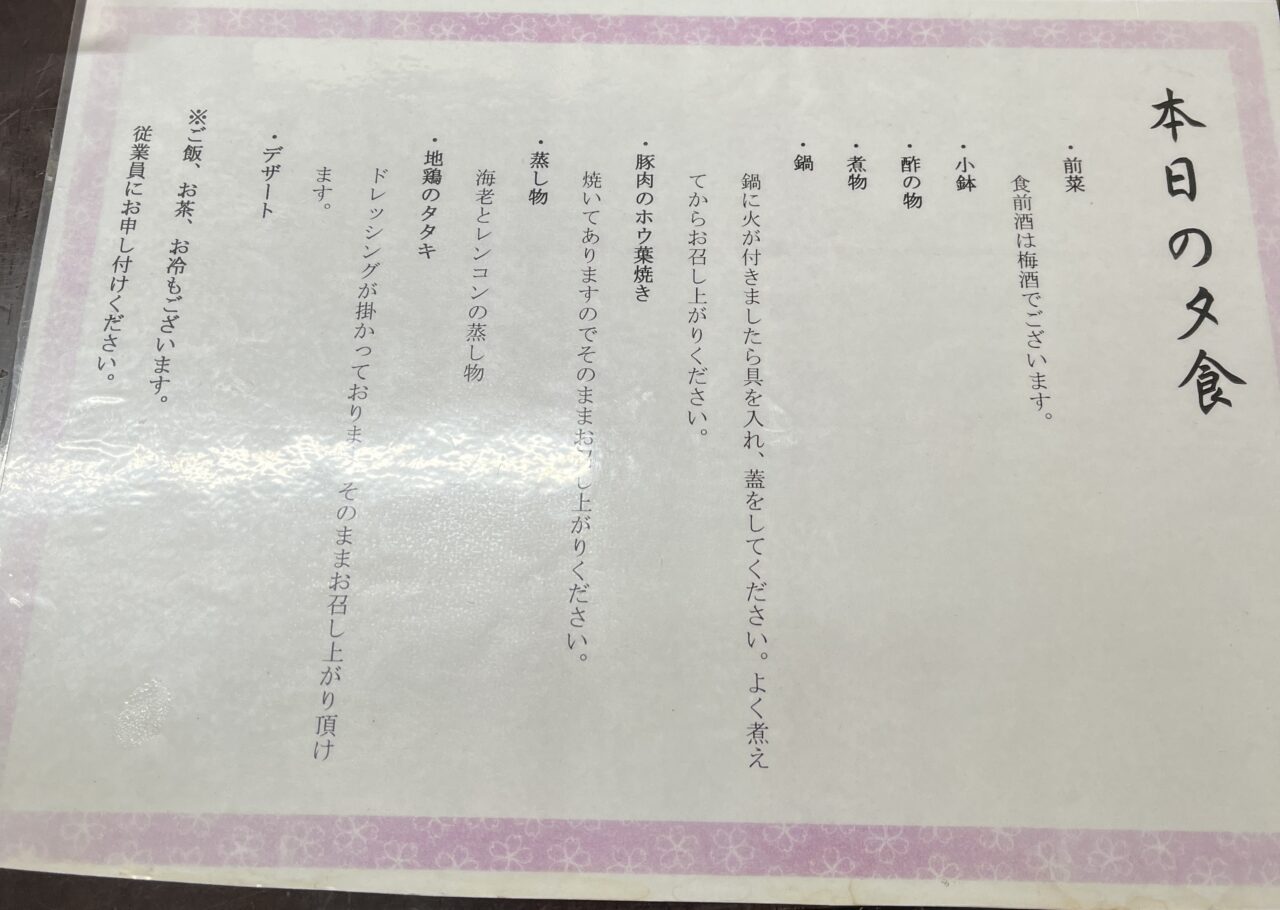 本日の夕食
・前菜
食前酒は梅酒でございます。
・小鉢
・酢の物
・煮物
・鍋
鍋に火が付きましたら具を入れ、蓋をしてください。よく煮え
てからお召し上がりください。
・豚肉のホウ葉焼き
焼いてありますのでそのままお召し上がりください。
・蒸し物
海老とレンコンの蒸し物
・地鶏のタタキ
ドレッシングが掛かっておりま そのままお召し上がり頂け
ます。
・デザート
※ご飯、お茶、お冷もございます。
従業員にお申し付けください。